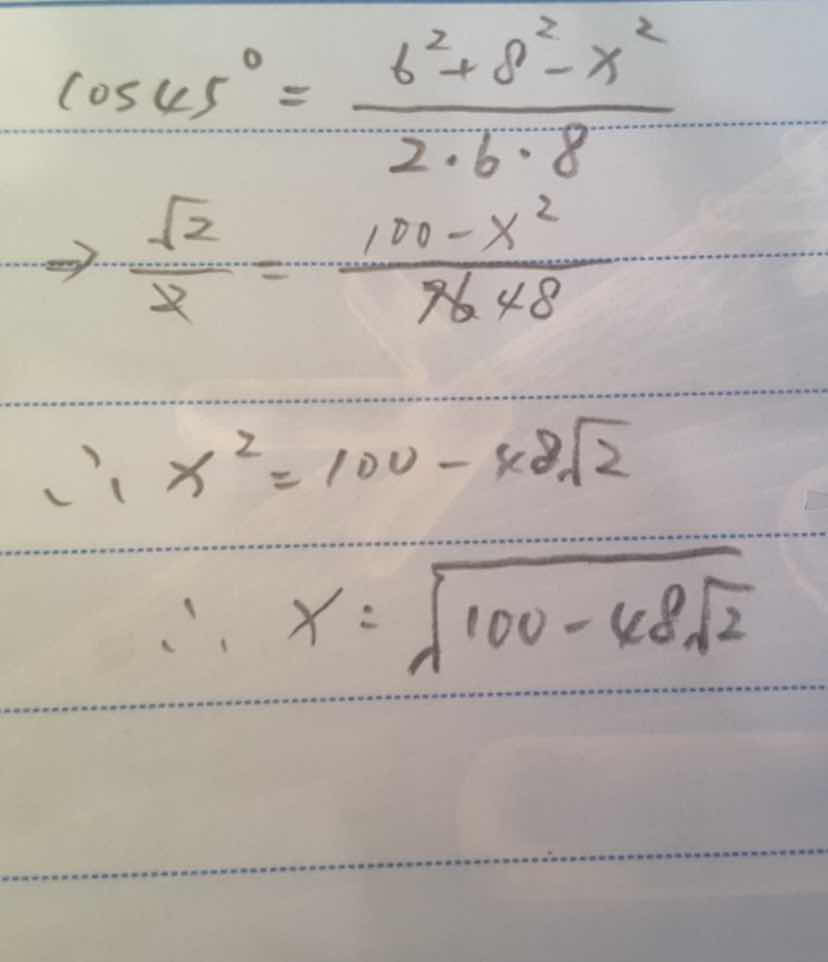 cos45° = (6² + 8² - x²) / (2·6·8)
⇒ √2/2 = (100 - x²) / 96 48
∴ x² = 100 - 48√2
∴ x = √(100 - 48√2)